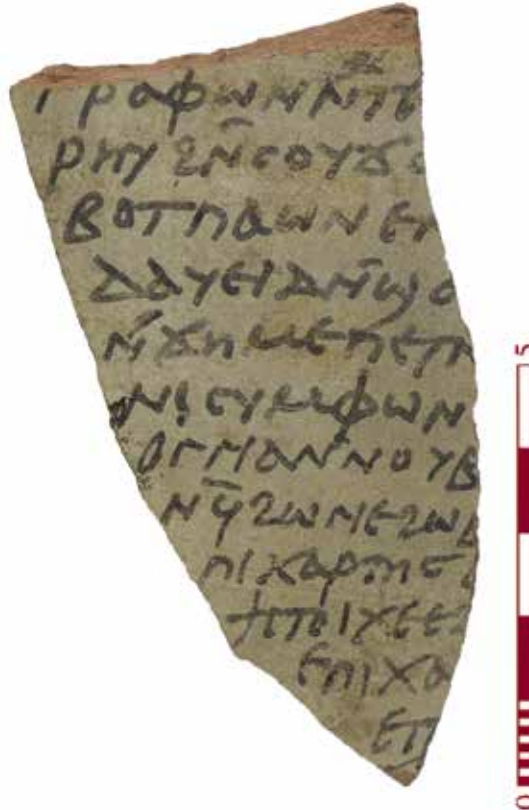 ⲅⲣⲁⲫⲱⲛⲛ̅ⲧⲉ
ⲣⲏⲩϩⲛ̅ⲥⲟⲩϫⲟ
ⲃⲟⲧⲡⲁⲱⲛⲉⲡ
ⲇⲁⲩⲉⲓⲇⲛ̅ϣⲟ
ⲛ̅ϫⲏⲙⲉⲡⲉⲧⲛ
ⲛⲓⲥⲩⲙⲫⲱⲛ
ⲟⲅⲅⲓⲁⲛ̅ⲛⲟⲩⲃ
ⲛϥ̅ϩⲱⲛⲉϩⲱⲃ
ⲡⲓⲭⲁⲣⲧⲏⲥ
ϯⲥⲧⲓⲭⲉⲉ
ⲉⲡⲓⲭⲁ
ⲉⲡ
5
0